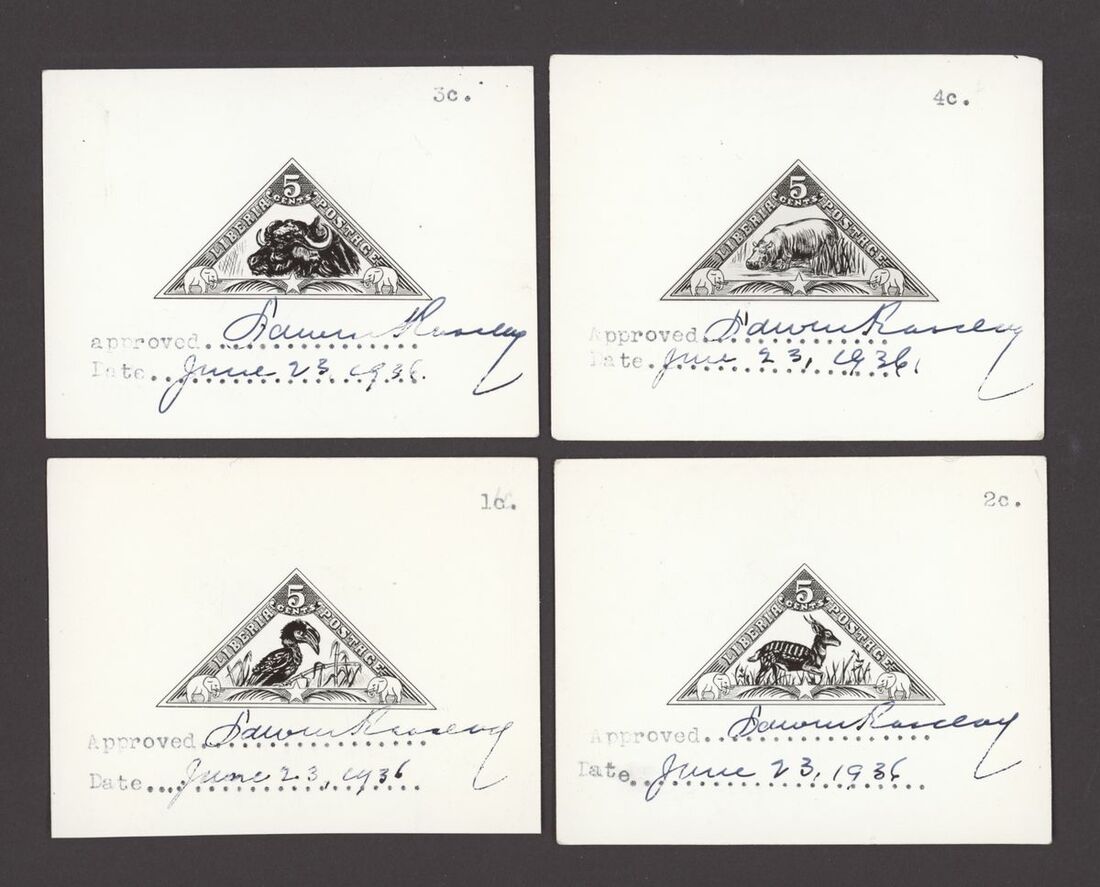 3c.
5
CENTS
LIBERIA POSTAGE
approved Edwin Barclay
Date June 23, 1936.
4c.
5
CENTS
LIBERIA POSTAGE
Approved Edwin Barclay
Date June 23, 1936.
1c.
5
CENTS
LIBERIA POSTAGE
Approved Edwin Barclay
Date June 23, 1936
2c.
5
CENTS
LIBERIA POSTAGE
Approved Edwin Barclay
Date June 23, 1936